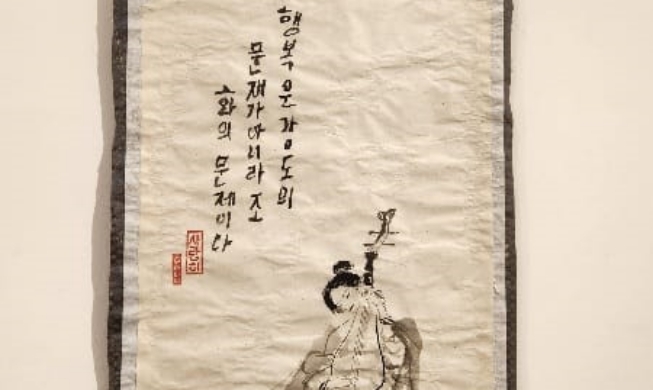 행복은 강도의
문제가 아니라 조
화의 문제이다